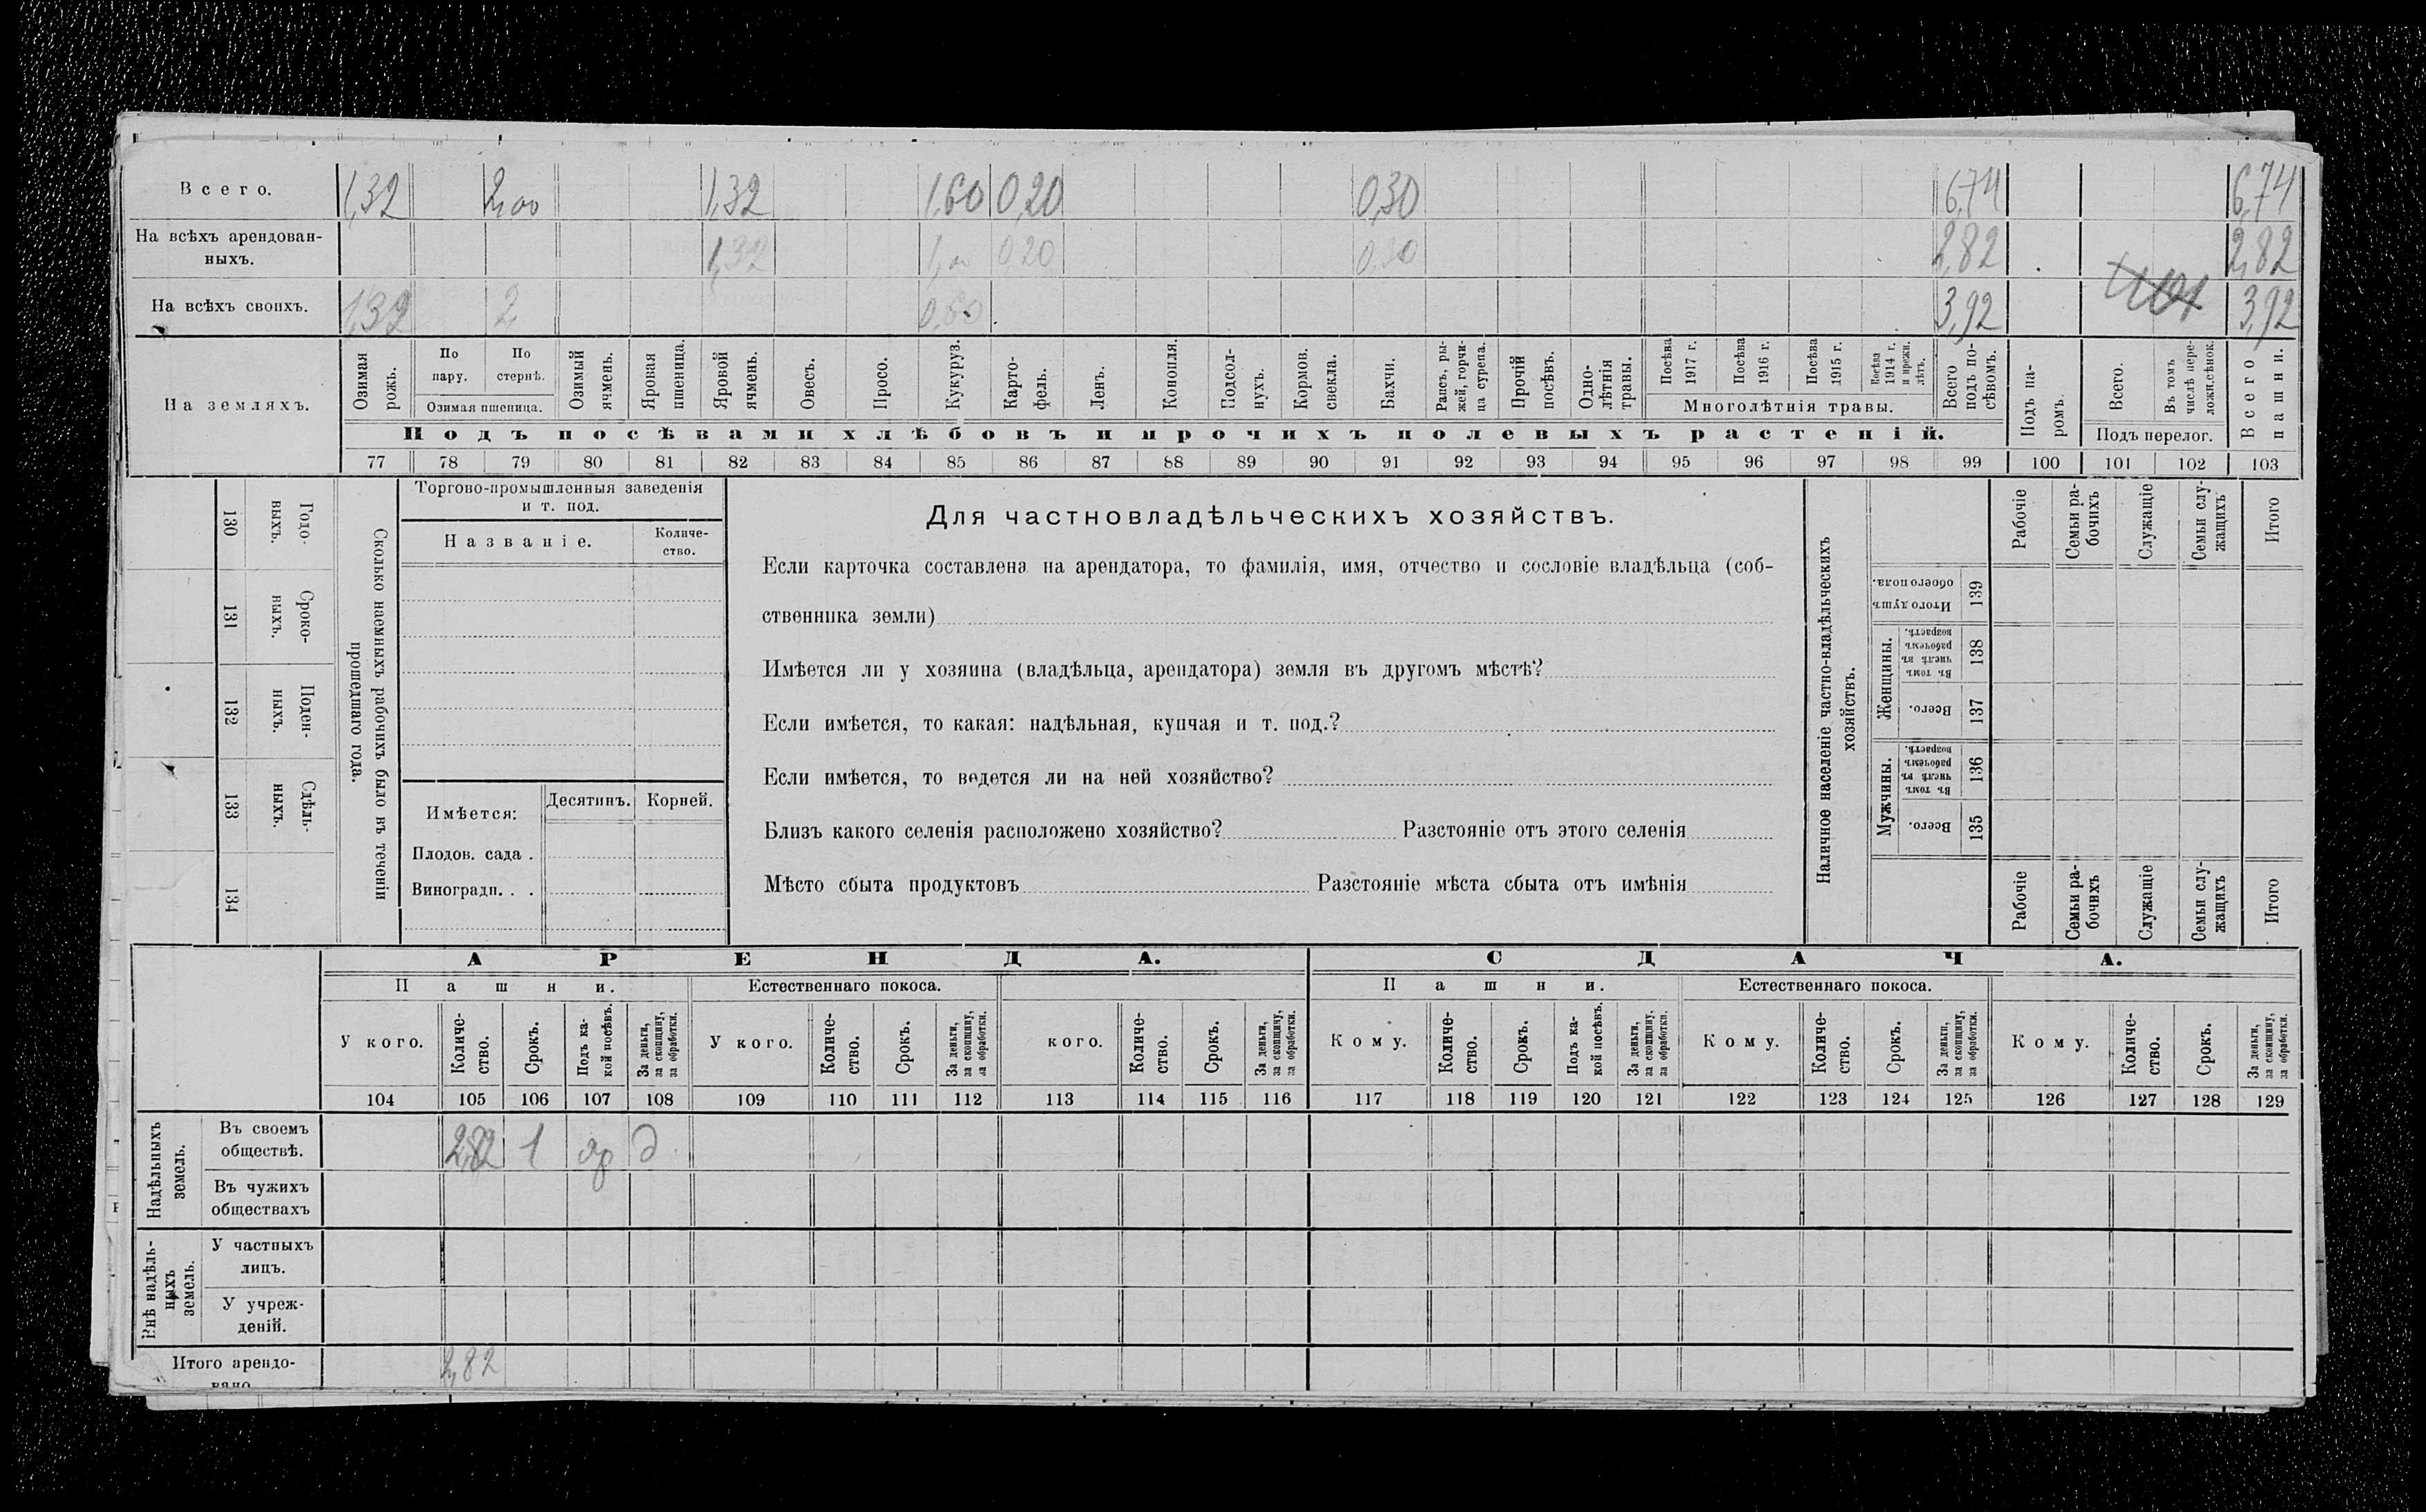 Всего. 1,32 2,00 1,32 1,60 0,20 0,30 6,74 6,74
На всѣхъ арендован-
ныхъ. 1,32 1,00 0,20 0,30 2,82 2,82
На всѣхъ своихъ. 1,32 2 0,60 3,92 3,92
На земляхъ.
Озимая рожь.
По пару.
По стернѣ.
Озимая пшеница.
Озимый ячмень.
Яровая пшеница.
Яровой ячмень.
Овесъ.
Просо.
Кукуруз.
Карто-
фель.
Ленъ.
Конопля.
Подсол-
нухъ.
Кормов.
свекла.
Бахчи.
Рапсъ, ры-
жей, горчи-
ца сурепа.
Прочій посѣвъ.
Одно-
лѣтнія травы.
Посѣва 1917 г.
Посѣва 1916 г.
Посѣва 1915 г.
Посѣва 1914 г. и прежн. лѣтъ.
Многолѣтнія травы.
Всего подъ по-
сѣвомъ.
Подъ па-
ромъ.
Всего.
Въ томъ числѣ пере-
ложн.сѣнок.
Подъ перелог.
Всего пашни.
Подъ посѣвами хлѣбовъ и прочихъ полевыхъ растеній.
77 78 79 80 81 82 83 84 85 86 87 88 89 90 91 92 93 94 95 96 97 98 99 100 101 102 103
130 Годо-
ныхъ.
131 Сроко-
ныхъ.
132 Поден-
ныхъ.
133 Сдѣль-
ныхъ.
134
Сколько наемныхъ рабочихъ было въ теченіи
прошедшаго года.
Торгово-промышленныя заведенія
и т. под.
Названіе.
Количе-
ство.
Имѣется:
Десятинъ.
Корней.
Плодов. сада .
Виноградн. . .
Для частновладѣльческихъ хозяйствъ.
Если карточка составлена на арендатора, то фамилія, имя, отчество и сословіе владѣльца (соб-
ственника земли)
Имѣется ли у хозяина (владѣльца, арендатора) земля въ другомъ мѣстѣ?
Если имѣется, то какая: надѣльная, купчая и т. под.?
Если имѣется, то ведется ли на ней хозяйство?
Близъ какого селенія расположено хозяйство? Разстояніе отъ этого селенія
Мѣсто сбыта продуктовъ Разстояніе мѣста сбыта отъ имѣнія
Наличное населеніе частно-владѣльческихъ
хозяйствъ.
Рабочіе
Семьи ра-
бочихъ
Служащіе
Семьи слу-
жащихъ
Итого
Итого душъ обоего пола. 139
Женщины.
Въ томъ числѣ въ рабочемъ возрастѣ. 138
Всего. 137
Мужчины.
Въ томъ числѣ въ рабочемъ возрастѣ. 136
Всего. 135
Рабочіе
Семьи ра-
бочихъ
Служащіе
Семьи слу-
жащихъ
Итого
АРЕНДА. СДАЧА.
Пашни. Естественнаго покоса. Пашни. Естественнаго покоса.
У кого.
Количе-
ство.
Срокъ.
Подъ ка-
кой посѣвъ.
За деньги,
за скопщину,
за обработки.
У кого.
Количе-
ство.
Срокъ.
За деньги,
за скопщину,
за обработки.
кого.
Количе-
ство.
Срокъ.
За деньги,
за скопщину,
за обработки.
Кому.
Количе-
ство.
Срокъ.
Подъ ка-
кой посѣвъ.
За деньги,
за скопщину,
за обработки.
Кому.
Количе-
ство.
Срокъ.
За деньги,
за скопщину,
за обработки.
Кому.
Количе-
ство.
Срокъ.
За деньги,
за скопщину,
за обработки.
104 105 106 107 108 109 110 111 112 113 114 115 116 117 118 119 120 121 122 123 124 125 126 127 128 129
Надѣльныхъ
земель.
Въ своемъ
обществѣ. 2,82 1 яр д
Въ чужихъ
обществахъ
Внѣ надѣль-
ныхъ
земель.
У частныхъ
лицъ.
У учреж-
деній.
Итого арендо-
вано 2,82